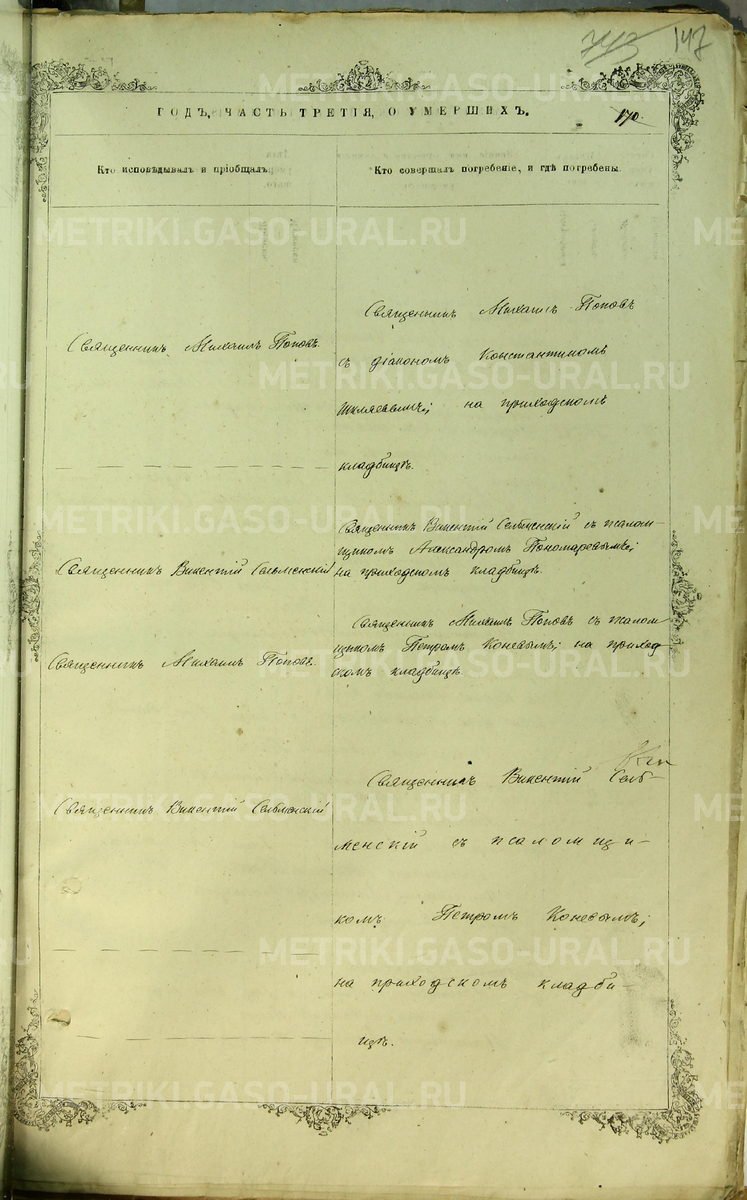 713 147
ГОДЪ, ЧАСТЬ ТРЕТІЯ, О УМЕРШИХЪ.
170.
Кто исповѣдывалъ и пріобщалъ.
Кто совершалъ погребеніе, и гдѣ погребены.
METRIKI.GASO-URAL.RU
Священникъ Михаилъ Поповъ.
Священникъ Михаилъ Поповъ
съ діакономъ Константиномъ
на приходскомъ
кладбищѣ.
Священникъ Викентій Сельменскій
Священникъ Викентій Сельменскій съ псалом-
щикомъ Александромъ Пономаревымъ;
на приходскомъ кладбищѣ.
Священникъ Михаилъ Поповъ.
Священникъ Михаилъ Поповъ съ псалом
щикомъ Петромъ Коневымъ; на приход
скомъ кладбищѣ.
Священникъ Викентій Сельменскій
Священникъ Викентій Сель-
менскій съ псаломщи-
комъ Петромъ Коневымъ;
на приходскомъ кладби-
щѣ.